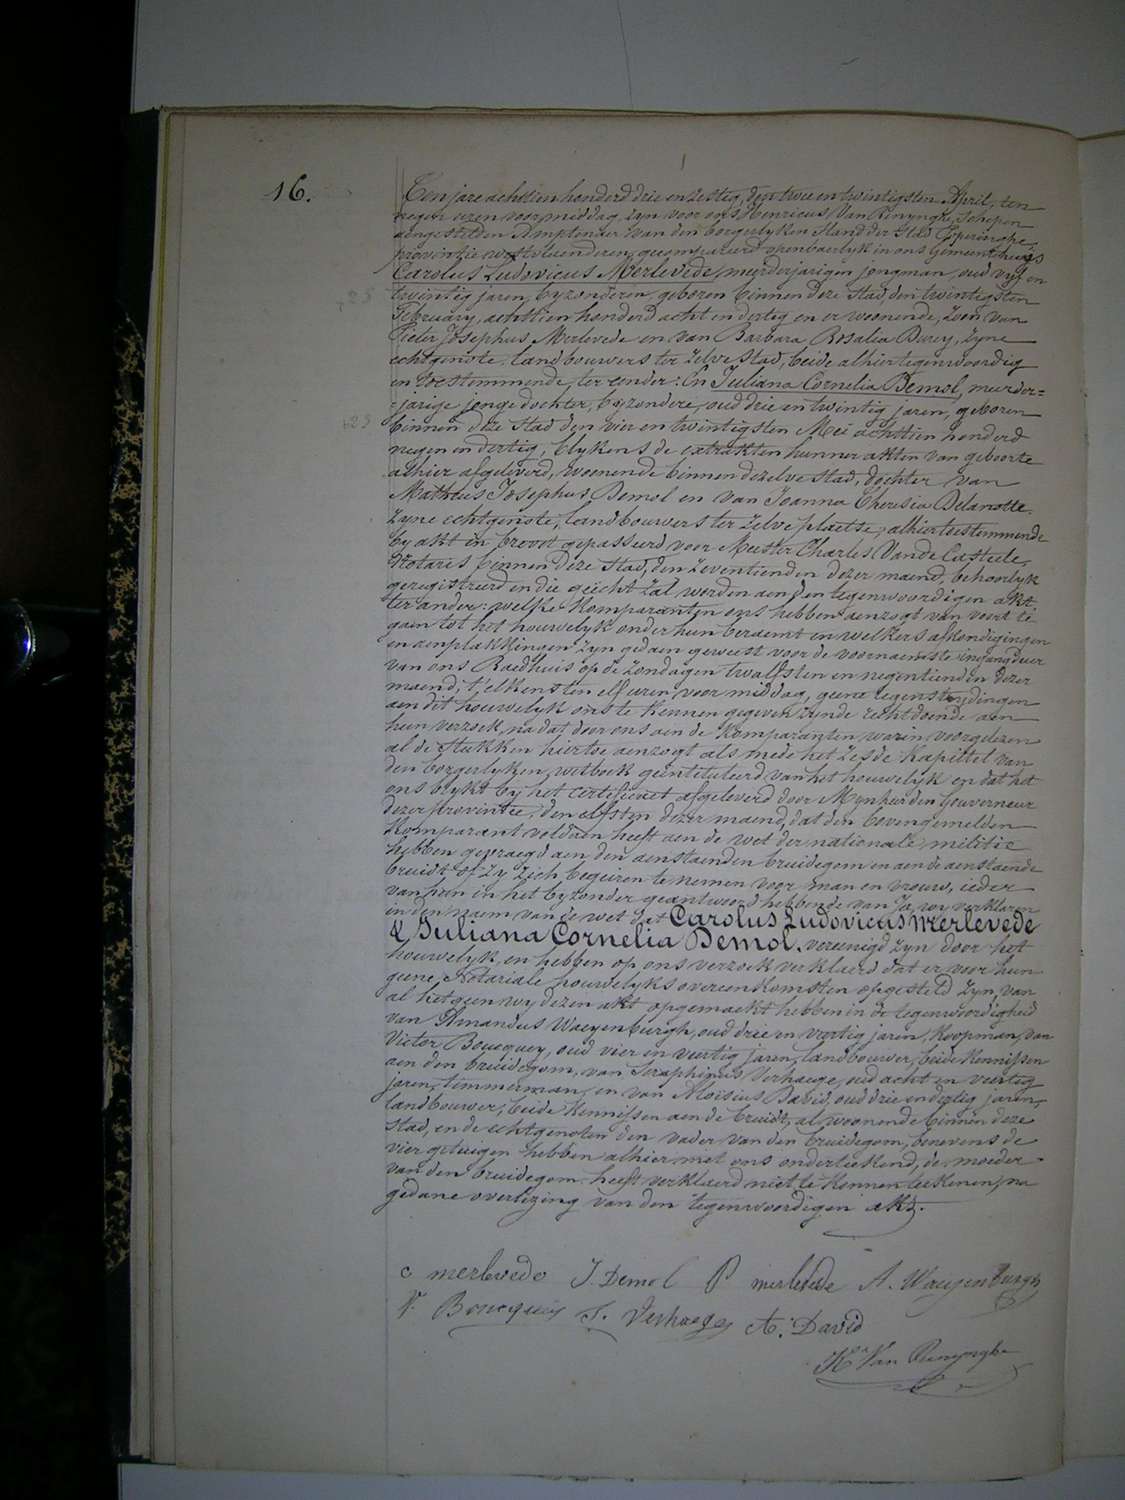 16.
Ten jare achttien honderd drie en zestig, den twee en twintigsten April, ten
negen uren voormiddag, zyn voor ons Henricus Van Renynghe, Schepen
aengestelden Amptenaer van den borgerlyken Stand der Stad Poperinghe,
provintie westvlaenderen, gecompareerd openbaerlyk in ons Gemeentehuis
Carolus Ludovicus Merlevede, meerderjarigen jongman, oud vyf en
twintig jaren, byzonderen, geboren binnen deze stad den twintigsten
February, achttien honderd acht en dertig en er woonende, zoon van
Pieter Josephus Merlevede en van Barbara Rosalia Burey, zyne
echtgenote landbouwers ter zelve stad, beide alhier tegenwoordig
en toestemmende, ter eender: En Juliana Cornelia Demol, meerder=
jarige jonge dochter, byzondere, oud drie en twintig jaren, geboren
binnen deze stad den vier en twintigsten Mei achttien honderd
negen en dertig, blykens de extrakten hunner akten van geboorte
alhier afgeleverd, woonende binnen dezelve stad, dochter van
Matheus Josephus Demol en van Joanna Theresia Delanotte
zyne echtgenote, landbouwers ter zelve plaetse, alhier toestemmende
by akt in brevet gepasseerd voor Meester Charles Vande Casteele,
Notaris binnen deze stad, den zeventienden dezer maend, behoorlyk
geregistreerd en die gehecht zal worden aen den tegenwoordigen akt
ter ander: welke komparanten ons hebben aenzogt van voort te
gaen tot het houwelyk onder hun beraemt en welkers afkondigingen
en aenplakkingen zyn gedaen geweest voor de voornaemste ingangdeur
van ons Raedhuis op de zondagen twalfsten en negentienden dezer
maend, t'elkens ten elf uren voor middag, geene tegenstrydingen
aen dit houwelyk ons te kennen gegeven zynde recht doende aen
hun verzoek, na dat door ons aen de komparanten waren voorgelezen
al de stukken hiertoe aenzogt als mede het zesde kapittel van
den borgerlyken wetboek geïntituleerd van het houwelyk en dat het
ons blykt by het certificaet afgeleverd door Mynheer den Gouverneur
dezer provintie, den elfsten dezer maend, dat den bovengemelden
Komparant voldaen heeft aen de wet der nationale militie
hebben gevraegd aen den aenstaenden bruidegom en aen de aenstaende
bruidt of zy zich begeiren te nemen voor man en vrouw, ieder
van hun in het byzonder geantwoord hebbende van Ja, wy verklaren
in den naem van de wet dat Carolus Ludovicus Merlevede
& Juliana Cornelia Demol, vereenigd zyn door het
houwelyk, en hebben op ons verzoek verklaerd dat er voor hun
geene Notariale houwelyks overeenkomsten opgesteld zyn, van
al hetgeen wy dezen akt opgemaekt hebben in de tegenwoordigheid
van Amandus Waeyenburgh, oud drie en veertig jaren, Koopman, van
Victor Boucquey, oud vier en veertig jaren, landbouwer, beide kennissen
aen den bruidegom, van Seraphinus Verhaege, oud acht en veertig
jaren, timmerman, en van Aloïsius David, oud drie en dertig jaren,
landbouwer, beide kennissen aen de bruidt, al woonende binnen deze
stad, en de echtgenoten den vader van den bruidegom, benevens de
vier getuigen hebben alhier met ons onderteekend, de moeder
van den bruidegom heeft verklaerd niet te kennen teekenen, na
gedane overlezing van den tegenwoordigen akt.
c merlevede J. Demol P merlevede A. Waeyenburgh
V. Boucquey S. Verhaege A. David
H. Van Renynghe